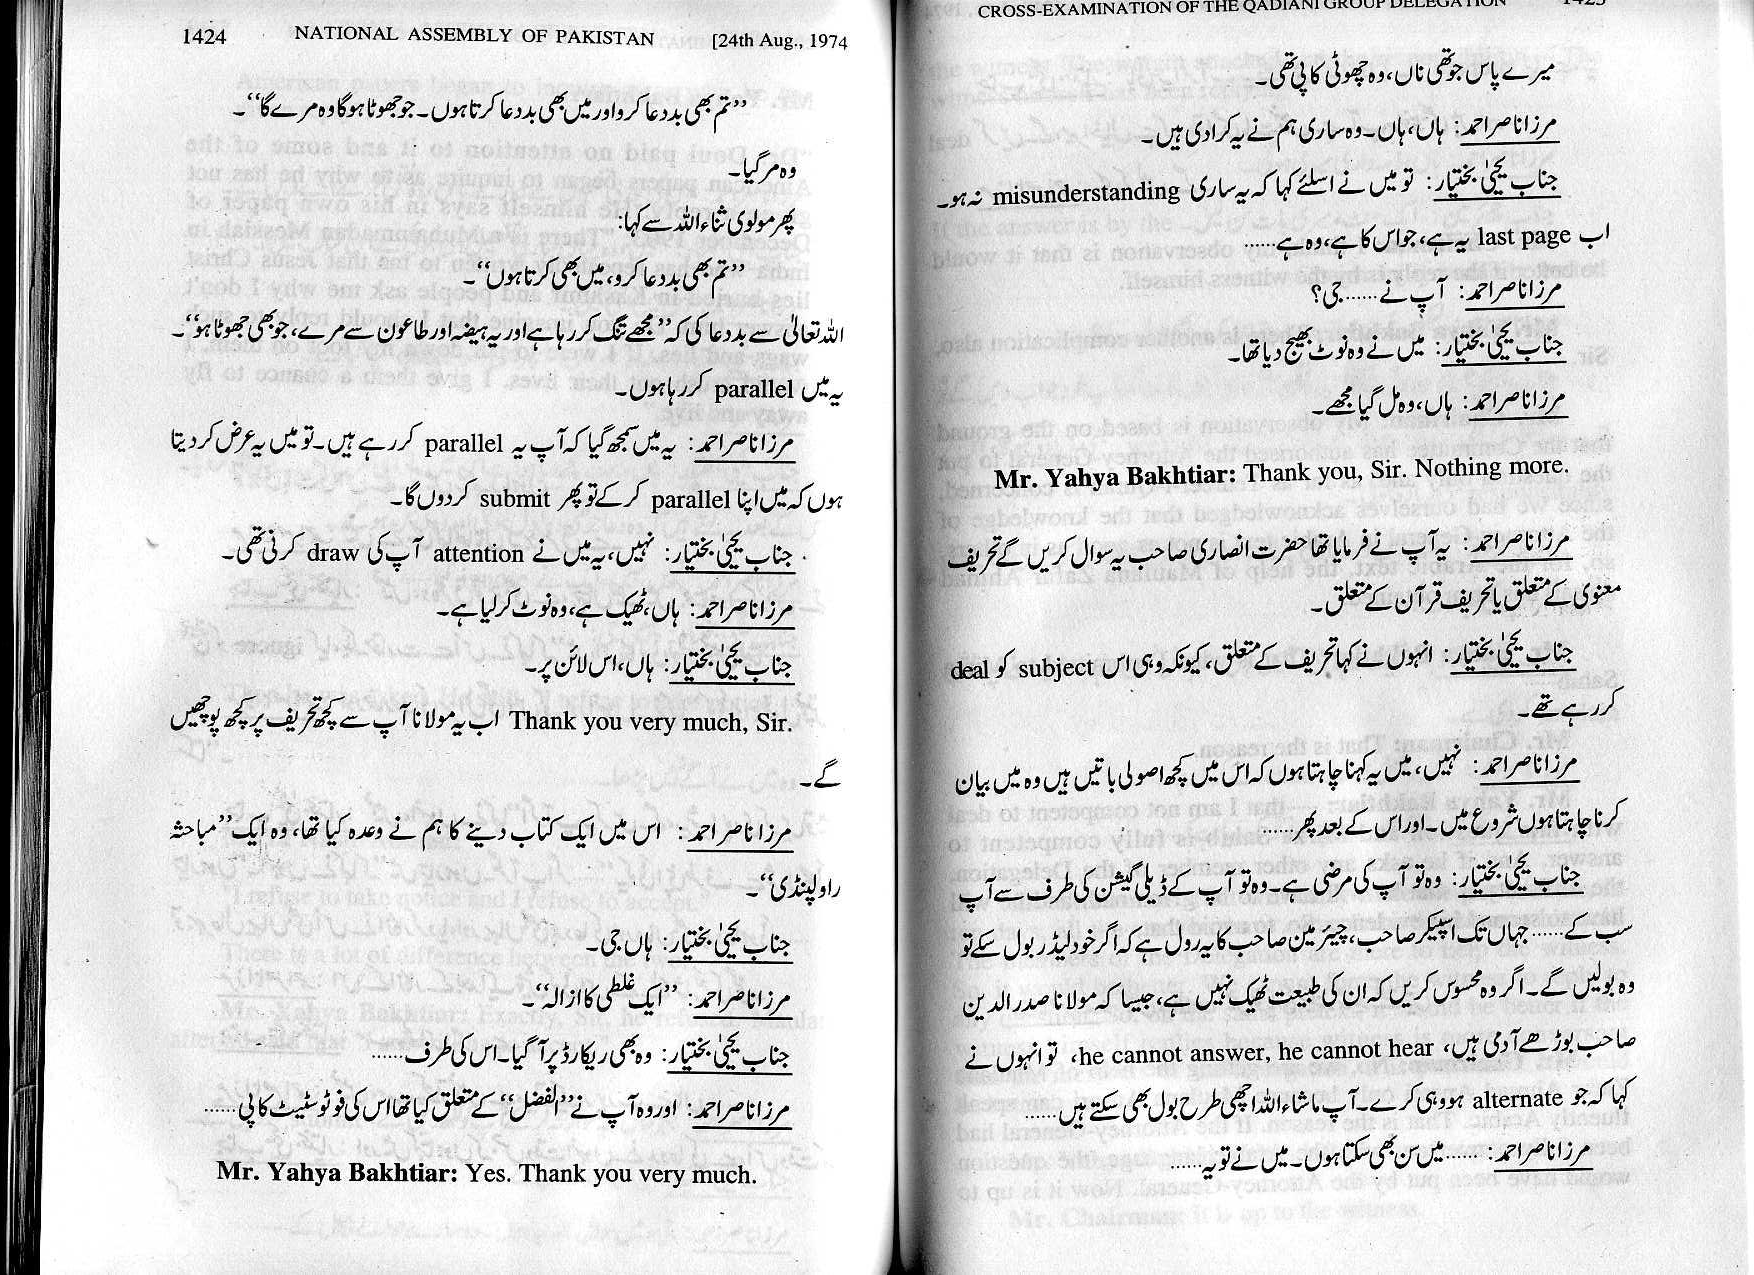 1424 NATIONAL ASSEMBLY OF PAKISTAN [24th Aug., 1974
”تم بھی بددعا کرو اور میں بھی بددعا کرتا ہوں۔ جو جھوٹا ہوگا وہ مرے گا“۔
وہ مر گیا۔
پھر مولوی ثناء اللہ سے کہا:
”تم بھی بددعا کرو، میں بھی کرتا ہوں“۔
اللہ تعالیٰ سے بددعا کی کہ ”مجھے تنگ کر رہا ہے اور یہ ہیضہ اور طاعون سے مرے، جو بھی جھوٹا ہو“۔
یہ میں parallel کر رہا ہوں۔
مرزا ناصر احمد: یہ میں سمجھ گیا کہ آپ یہ parallel کر رہے ہیں۔ تو میں یہ عرض کر دیتا
ہوں کہ میں اپنا parallel کر کے تو پھر submit کر دوں گا۔
جناب یحییٰ بختیار: نہیں، یہ میں نے attention آپ کی draw کرنی تھی۔
مرزا ناصر احمد: ہاں، ٹھیک ہے، وہ نوٹ کر لیا ہے۔
جناب یحییٰ بختیار: ہاں، اس لائن پر۔
Thank you very much, Sir. اب یہ مولانا آپ سے کچھ تحریف پر کچھ پوچھیں
گے۔
مرزا ناصر احمد: اس میں ایک کتاب دینے کا ہم نے وعدہ کیا تھا، وہ ایک ”مباحثہ
راولپنڈی“۔
جناب یحییٰ بختیار: ہاں جی۔
مرزا ناصر احمد: ”ایک غلطی کا ازالہ“۔
جناب یحییٰ بختیار: وہ بھی ریکارڈ پر آ گیا۔ اس کی طرف......
مرزا ناصر احمد: اور وہ آپ نے ”الفضل“ کے متعلق کیا تھا اس کی فوٹو سٹیٹ کاپی......
Mr. Yahya Bakhtiar: Yes. Thank you very much.
CROSS-EXAMINATION OF THE QADIANI GROUP DELEGATION 1425
میرے پاس جو تھی ناں، وہ چھوٹی کاپی تھی۔
مرزا ناصر احمد: ہاں، ہاں۔ وہ ساری ہم نے یہ کرا دی ہیں۔
جناب یحییٰ بختیار: تو میں نے اسلئے کہا کہ یہ ساری misunderstanding نہ ہو۔
اب last page یہ ہے، جو اس کا ہے، وہ ہے......
مرزا ناصر احمد: آپ نے...... جی؟
جناب یحییٰ بختیار: میں نے وہ نوٹ بھیج دیا تھا۔
مرزا ناصر احمد: ہاں، وہ مل گیا مجھے۔
Mr. Yahya Bakhtiar: Thank you, Sir. Nothing more.
مرزا ناصر احمد: یہ آپ نے فرمایا تھا حضرت انصاری صاحب یہ سوال کریں گے تحریف
معنوی کے متعلق یا تحریف قرآن کے متعلق۔
جناب یحییٰ بختیار: انہوں نے کہا تحریف کے متعلق، کیونکہ وہی اس subject کو deal
کر رہے تھے۔
مرزا ناصر احمد: نہیں، میں یہ کہنا چاہتا ہوں کہ اس میں کچھ اصولی باتیں ہیں وہ میں بیان
کرنا چاہتا ہوں شروع میں۔ اور اس کے بعد پھر......
جناب یحییٰ بختیار: وہ تو آپ کی مرضی ہے۔ وہ تو آپ کے ڈیلی گیشن کی طرف سے آپ
سب کے...... جہاں تک اسپیکر صاحب، چیئرمین صاحب کا یہ رول ہے کہ اگر خود لیڈر بول سکے تو
وہ بولیں گے۔ اگر وہ محسوس کریں کہ ان کی طبیعت ٹھیک نہیں ہے، جیسا کہ مولانا صدر الدین
صاحب بوڑھے آدمی ہیں، he cannot answer, he cannot hear، تو انہوں نے
کہا کہ جو alternate ہو وہی کرے۔ آپ ماشاء اللہ اچھی طرح بول بھی سکتے ہیں......
مرزا ناصر احمد: ...... میں سن بھی سکتا ہوں۔ میں نے تو یہ......